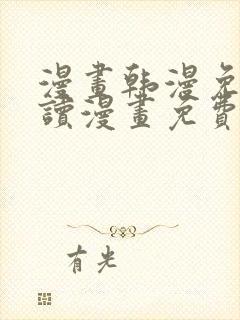 漫畫韩漫免
讀漫畫免費
有光